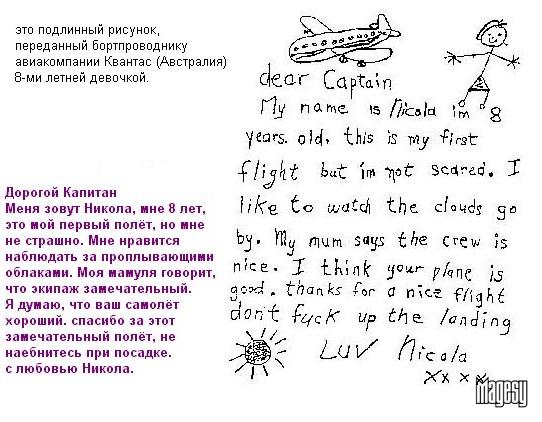 это подлинный рисунок,
переданный бортпроводнику
авиакомпании Квантас (Австралия)
8-ми летней девочкой.
dear Captain
My name is Nicola im 8
years. old, this is my first
flight but i'm not scared. I
like to watch the clouds go
by. My mum says the crew is
nice. I think your plane is
good. thanks for a nice flight
don't fuck up the landing
LUV Nicola
xxxx
Дорогой Капитан
Меня зовут Никола, мне 8 лет,
это мой первый полёт, но мне
не страшно. Мне нравится
наблюдать за проплывающими
облаками. Моя мамуля говорит,
что экипаж замечательный.
Я думаю, что ваш самолёт
хороший. спасибо за этот
замечательный полёт, не
наебнитесь при посадке.
с любовью Никола.
magesy